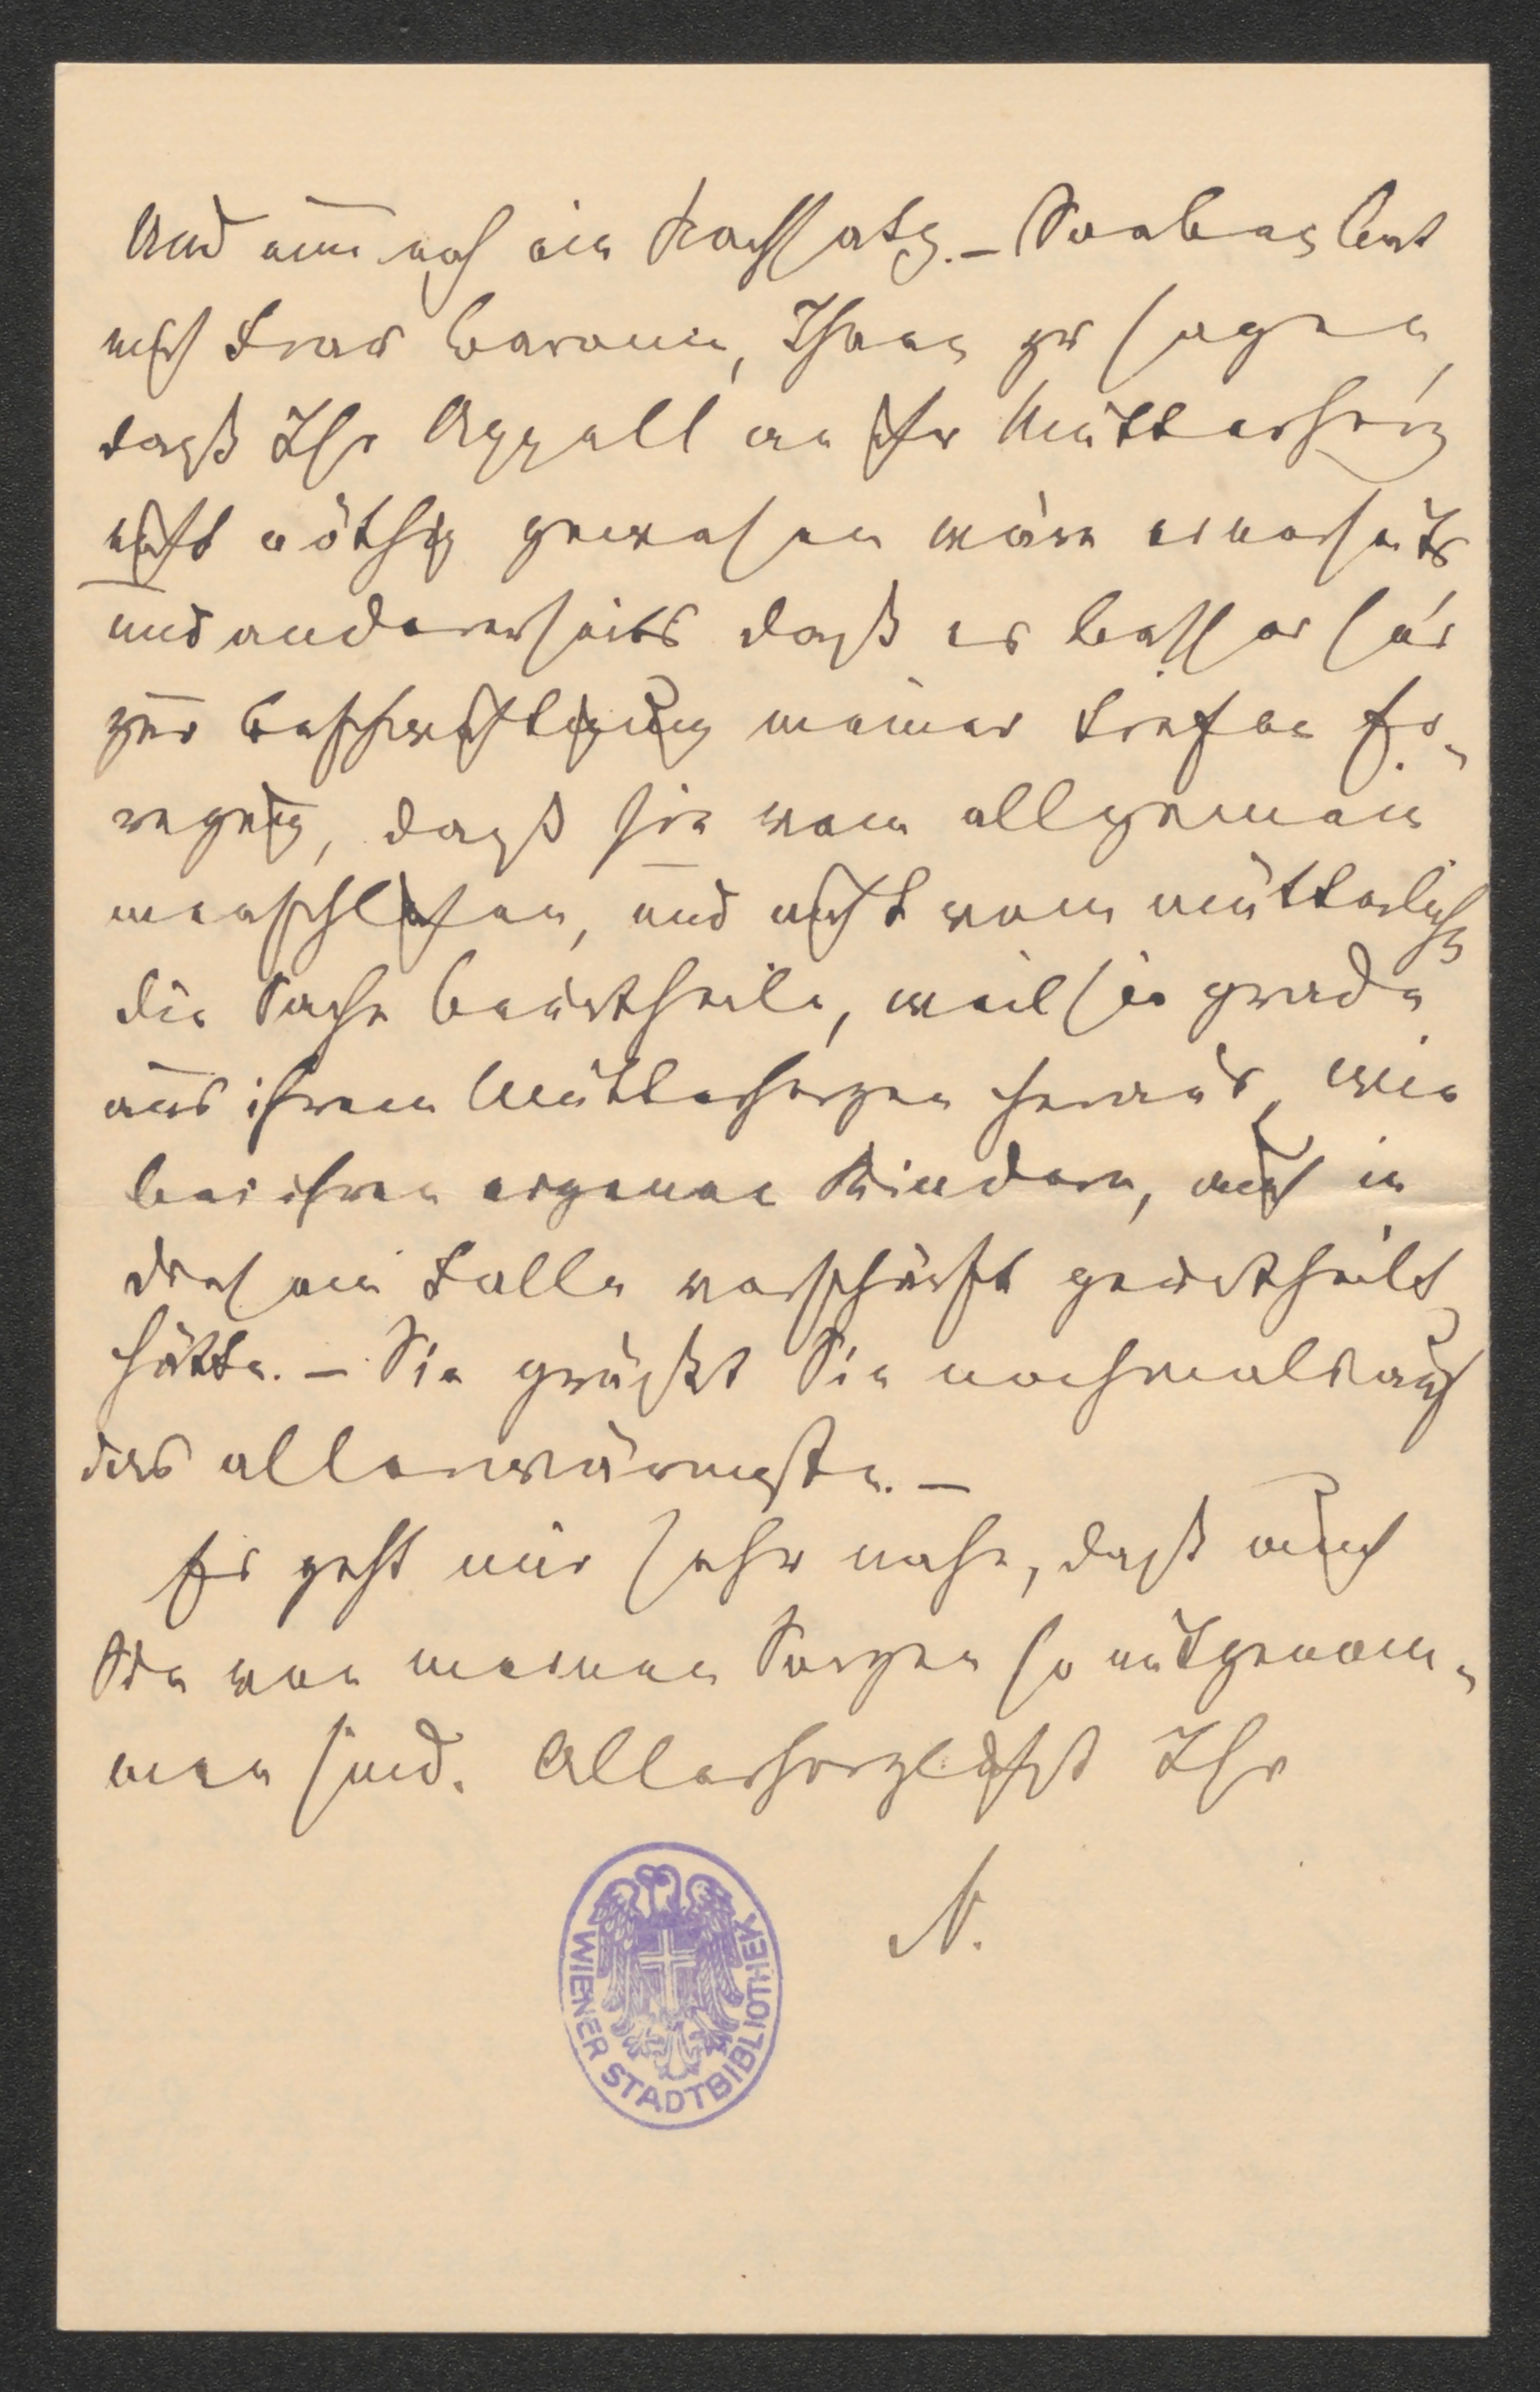 Und nun noch ein Nachsatz. – Soeben bat
mich Frau Baronin, Ihnen zu sagen,
daß Ihr Appell an ihr Mutterherz
nicht nöthig gewesen wäre einerseits
und andererseits daß es besser sei
zur Beschwichtigung meiner tiefen Er-
regung, daß sie vom allgemein
menschlichen, und nicht vom mütterlichen
die Sache beurtheile, weil sie grade
aus ihrem Mutterherzen heraus, wie
bei ihren eigenen Kindern, auch in
diesem Falle verschärft geurtheilt
hätte. – Sie grüßt Sie nochmals auf
das allerwärmste. –
Es geht mir sehr nahe, daß auch
Sie von meinen Sorgen so mitgenom-
men sind. Allerherzlichst Ihr
N.
WIENER STADTBIBLIOTHEK